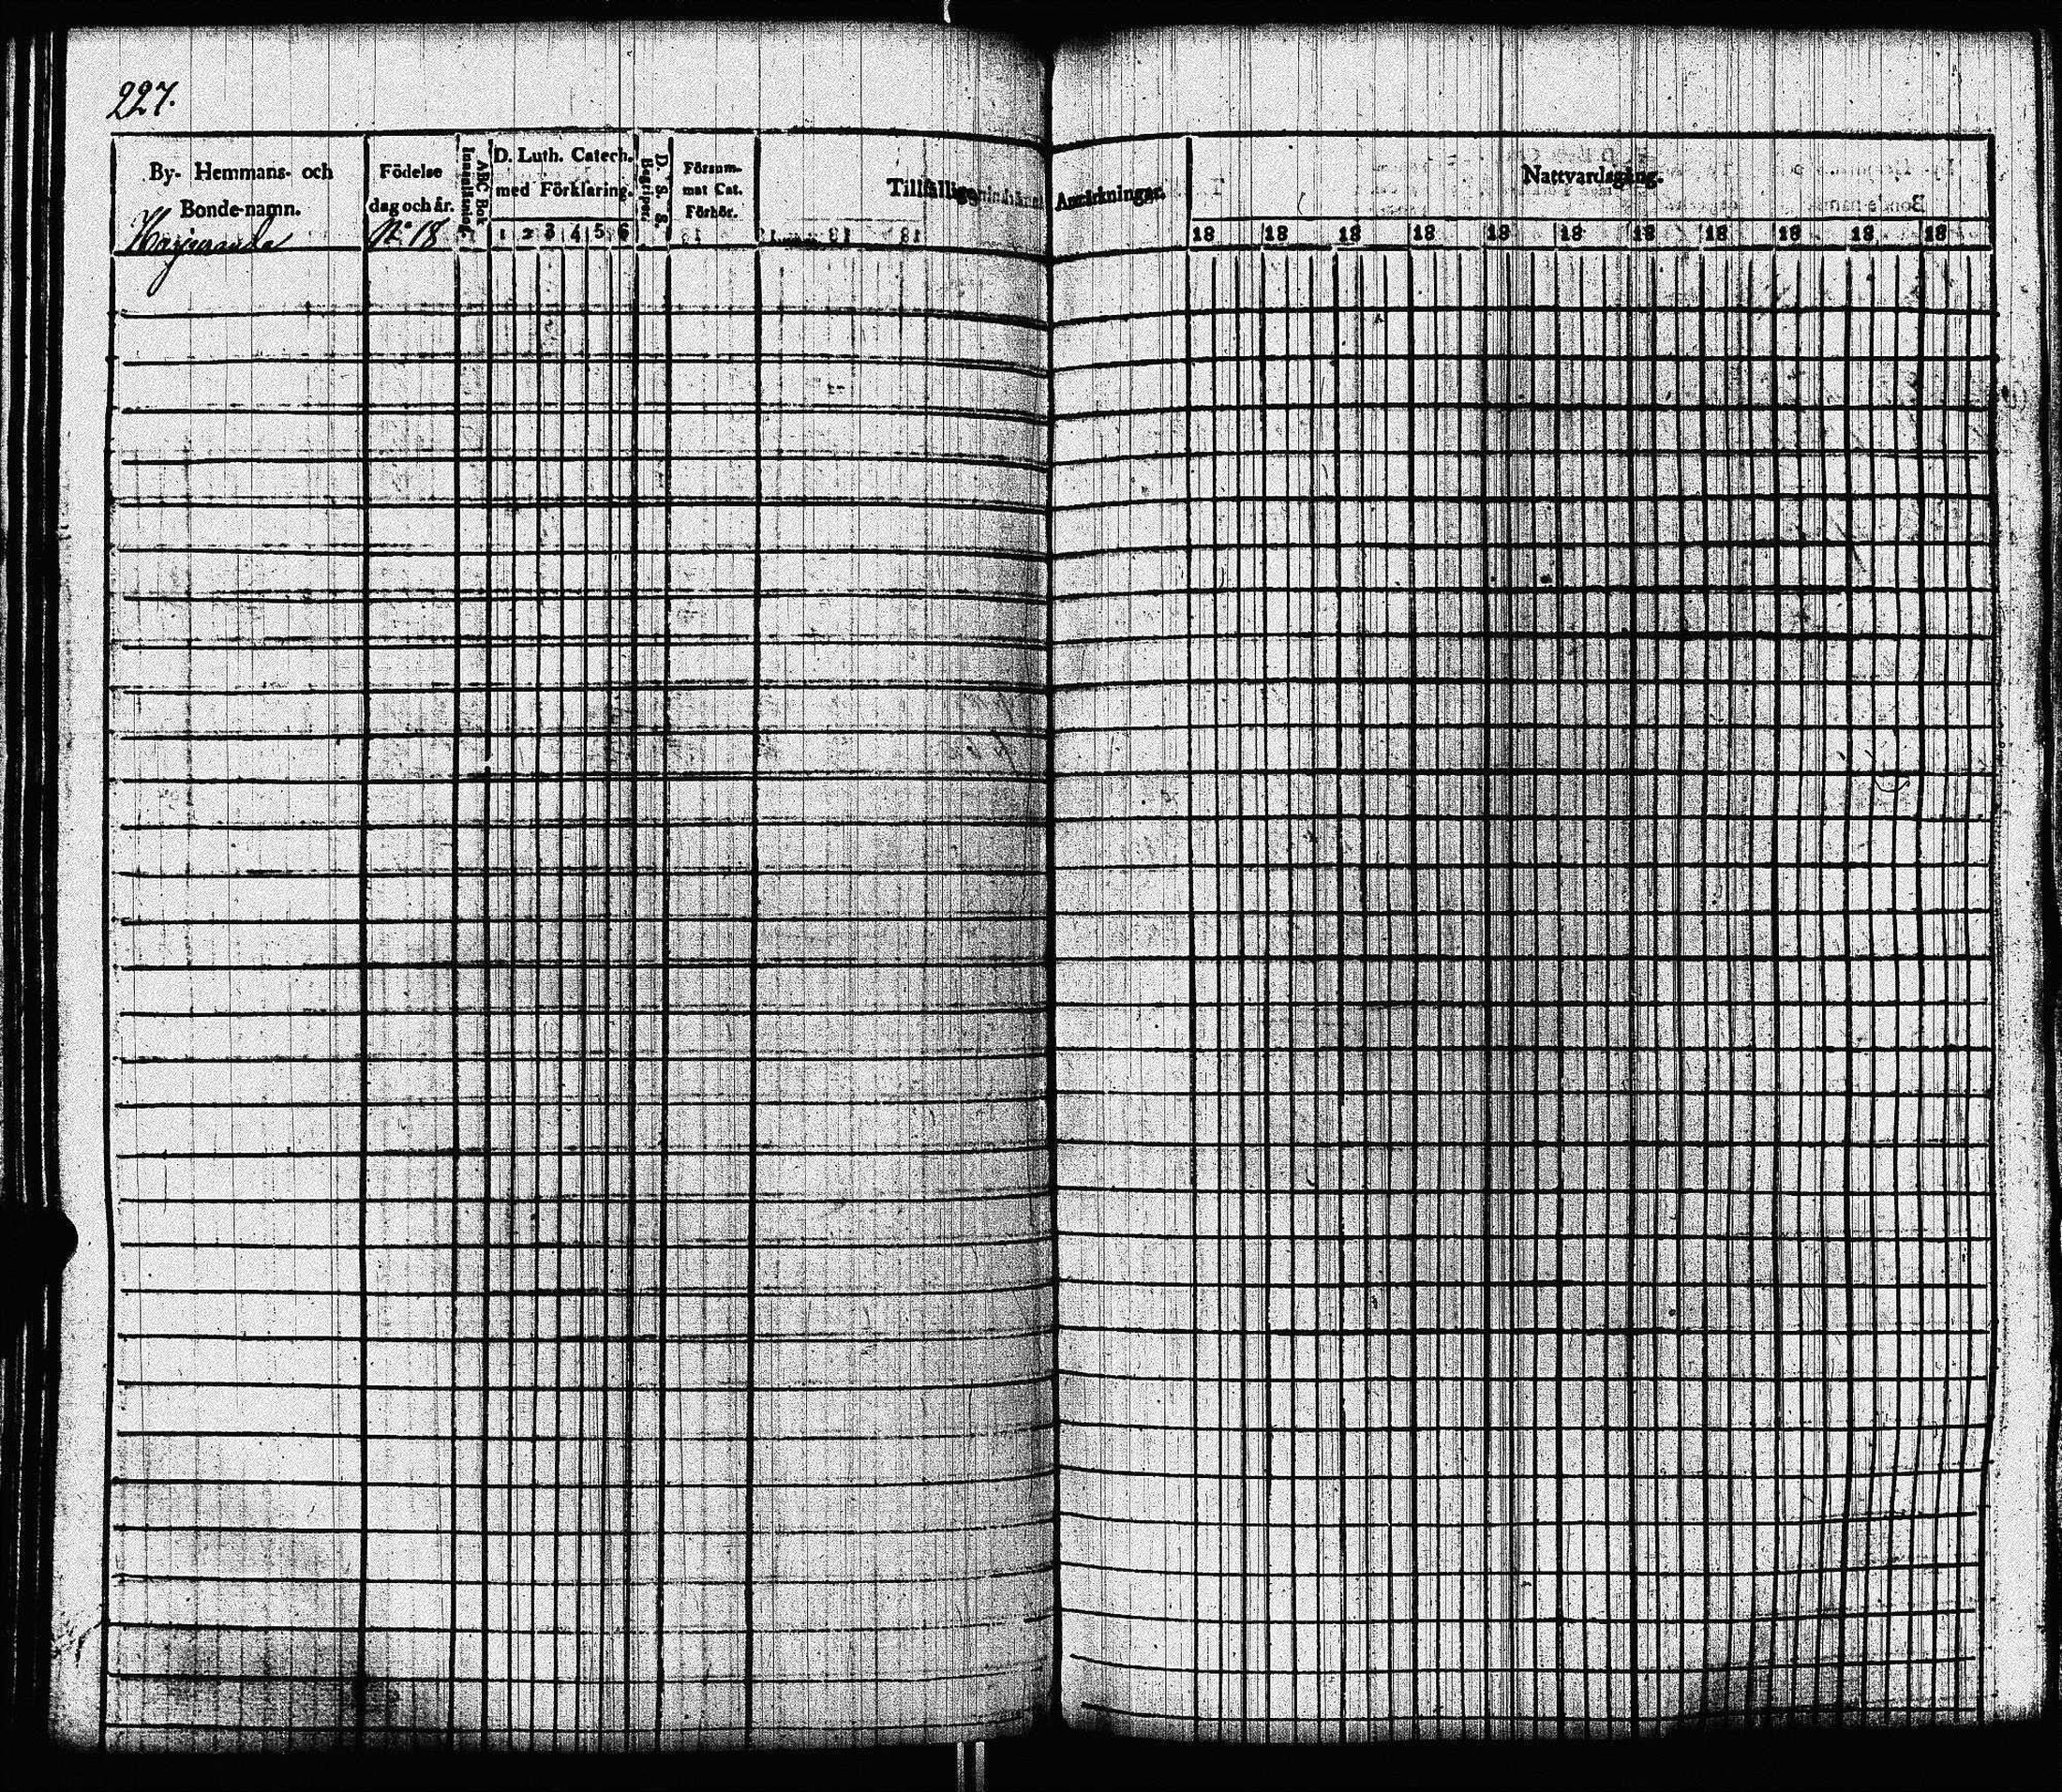 227.
By- Hemmans- och
Bonde-namn.
Födelse
dag och år.
ABC Bok
Innanläsning.
D. Luth. Catech.
med Förklaring.
1 2 3 4 5 6
D. S. S.
Begriper.
Försum-
mat Cat.
Förhör.
Tillfällige Anmärkningar.
Nattvardsgång.
18 18 18 18 18 18 18 18 18 18 18
No 18